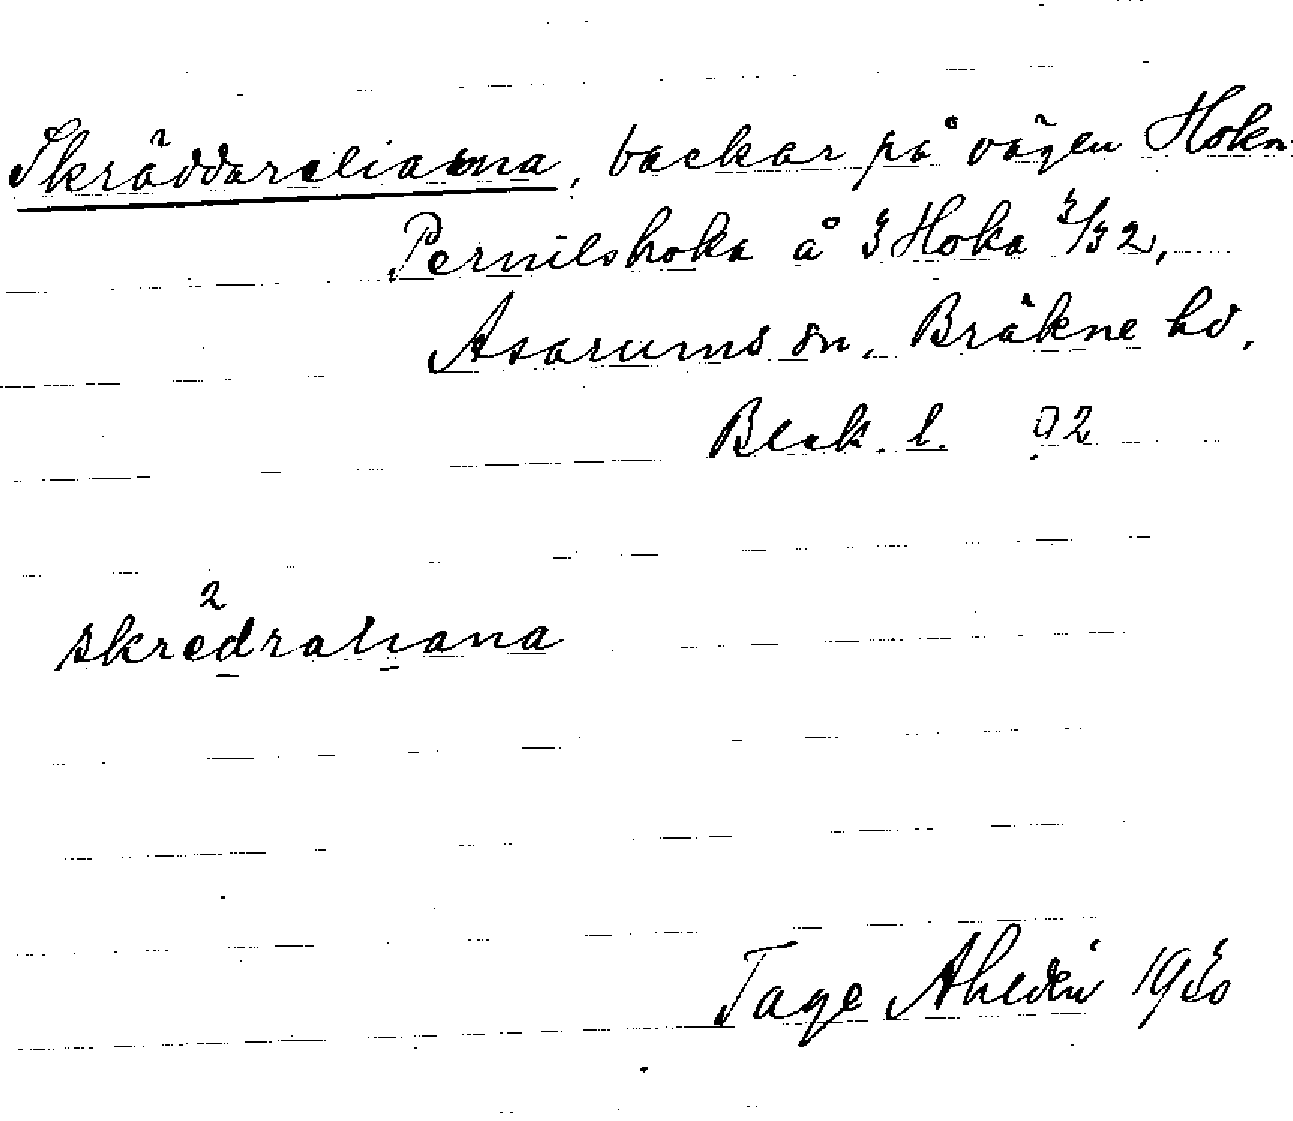 Skräddareliarna, backar på vägen Hoka
Pernilshoka å 3 Hoka 3/32,
Asarums sn, Bräkne hd,
Blek. l. 92
2
skredraliana
Tage Ahldén 1930